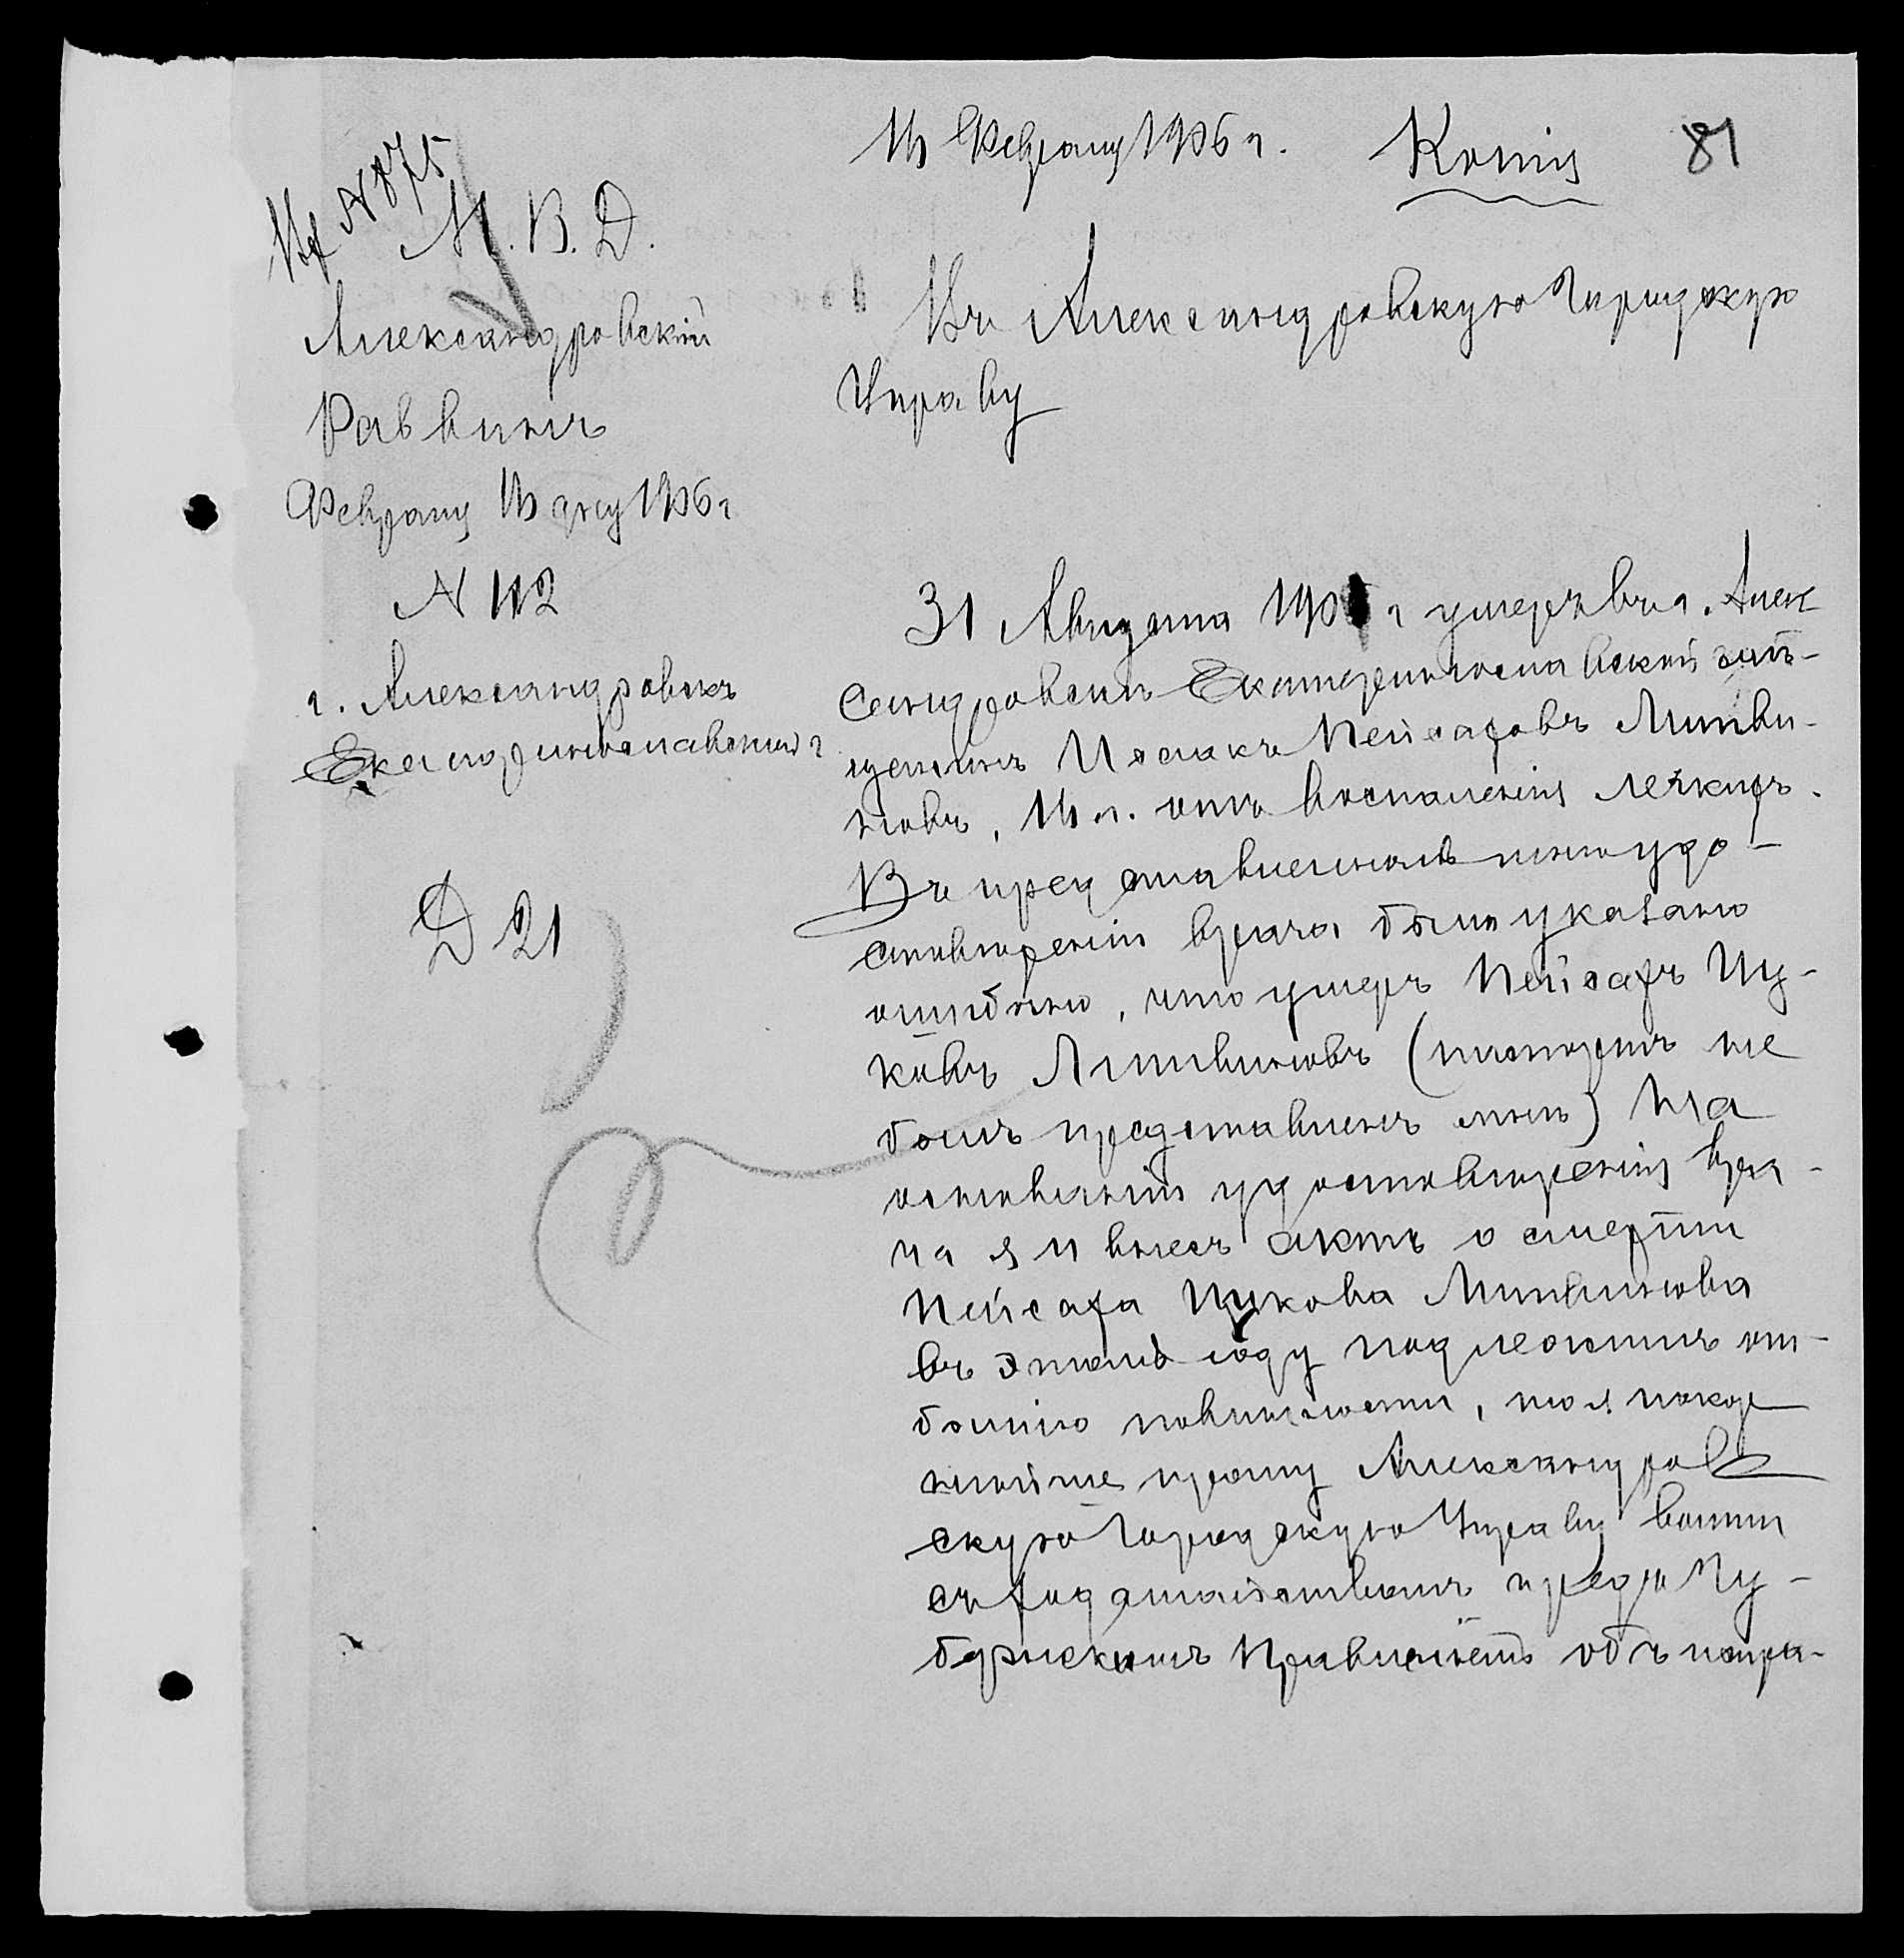 Февраля 1906 г. Копія 81
№ 875
М. В. Д.
Александровскій
Раввинъ
Февраля дня 1906 г
№ 112
г. Александровскъ
Екатеринославской г
Д 21
Въ Александровскую Городскую
Управу
31 Августа г умеръ въ г. Алек
сандровскѣ Екатеринославской
Исаакъ Пейсаховъ Литви-
новъ, л. отъ воспаленія легкихъ.
Въ представленномъ мнѣ удо-
стовѣреніи врача было указано
ошибочно, что умеръ Пейсахъ Иц-
ковъ Литвиновъ (паспортъ не
былъ представленъ мнѣ) На
основаніи удостовѣренія вра-
ча я и внесъ актъ о смерти
Пейсаха Ицкова Литвинова
въ этомъ году подлежитъ от-
бытію повинности, то я покор
нѣйше прошу Александров
скую Городскую Управу войти
съ ходатайствомъ предъ Гу-
бернскимъ Правленіемъ объ испра-